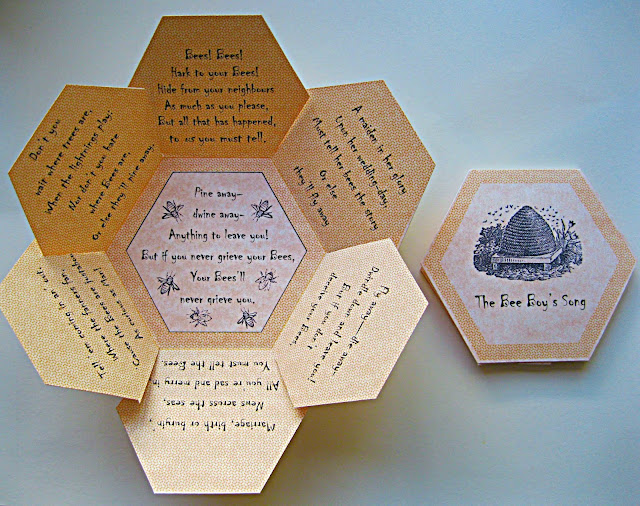 Bees! Bees!
Hark to your Bees!
Hide from your neighbours
As much as you please,
But all that has happened,
to us you must tell,
A maiden in her glory
Upon her wedding-day,
Must tell her Bees the story
Or else
they'll fly away
Fly away—die away—
Dwindle down and leave you!
But if you don't
deceive your Bees,
Marriage, birth or buryin',
News across the seas,
All you're sad and merry in,
You must tell the Bees.
Tell 'em coming in an' out,
Where the Fanners fan,
'Cause the Bees are justabout
As curious as a Man!
Don't you
wait where trees are,
When the lightnings play;
Nor don't you hate
where Bees are,
Or else they'll pine away.
Pine away—
dwine away—
Anything to leave you!
But if you never grieve your Bees,
Your Bees'll
never grieve you.
The Bee Boy's Song